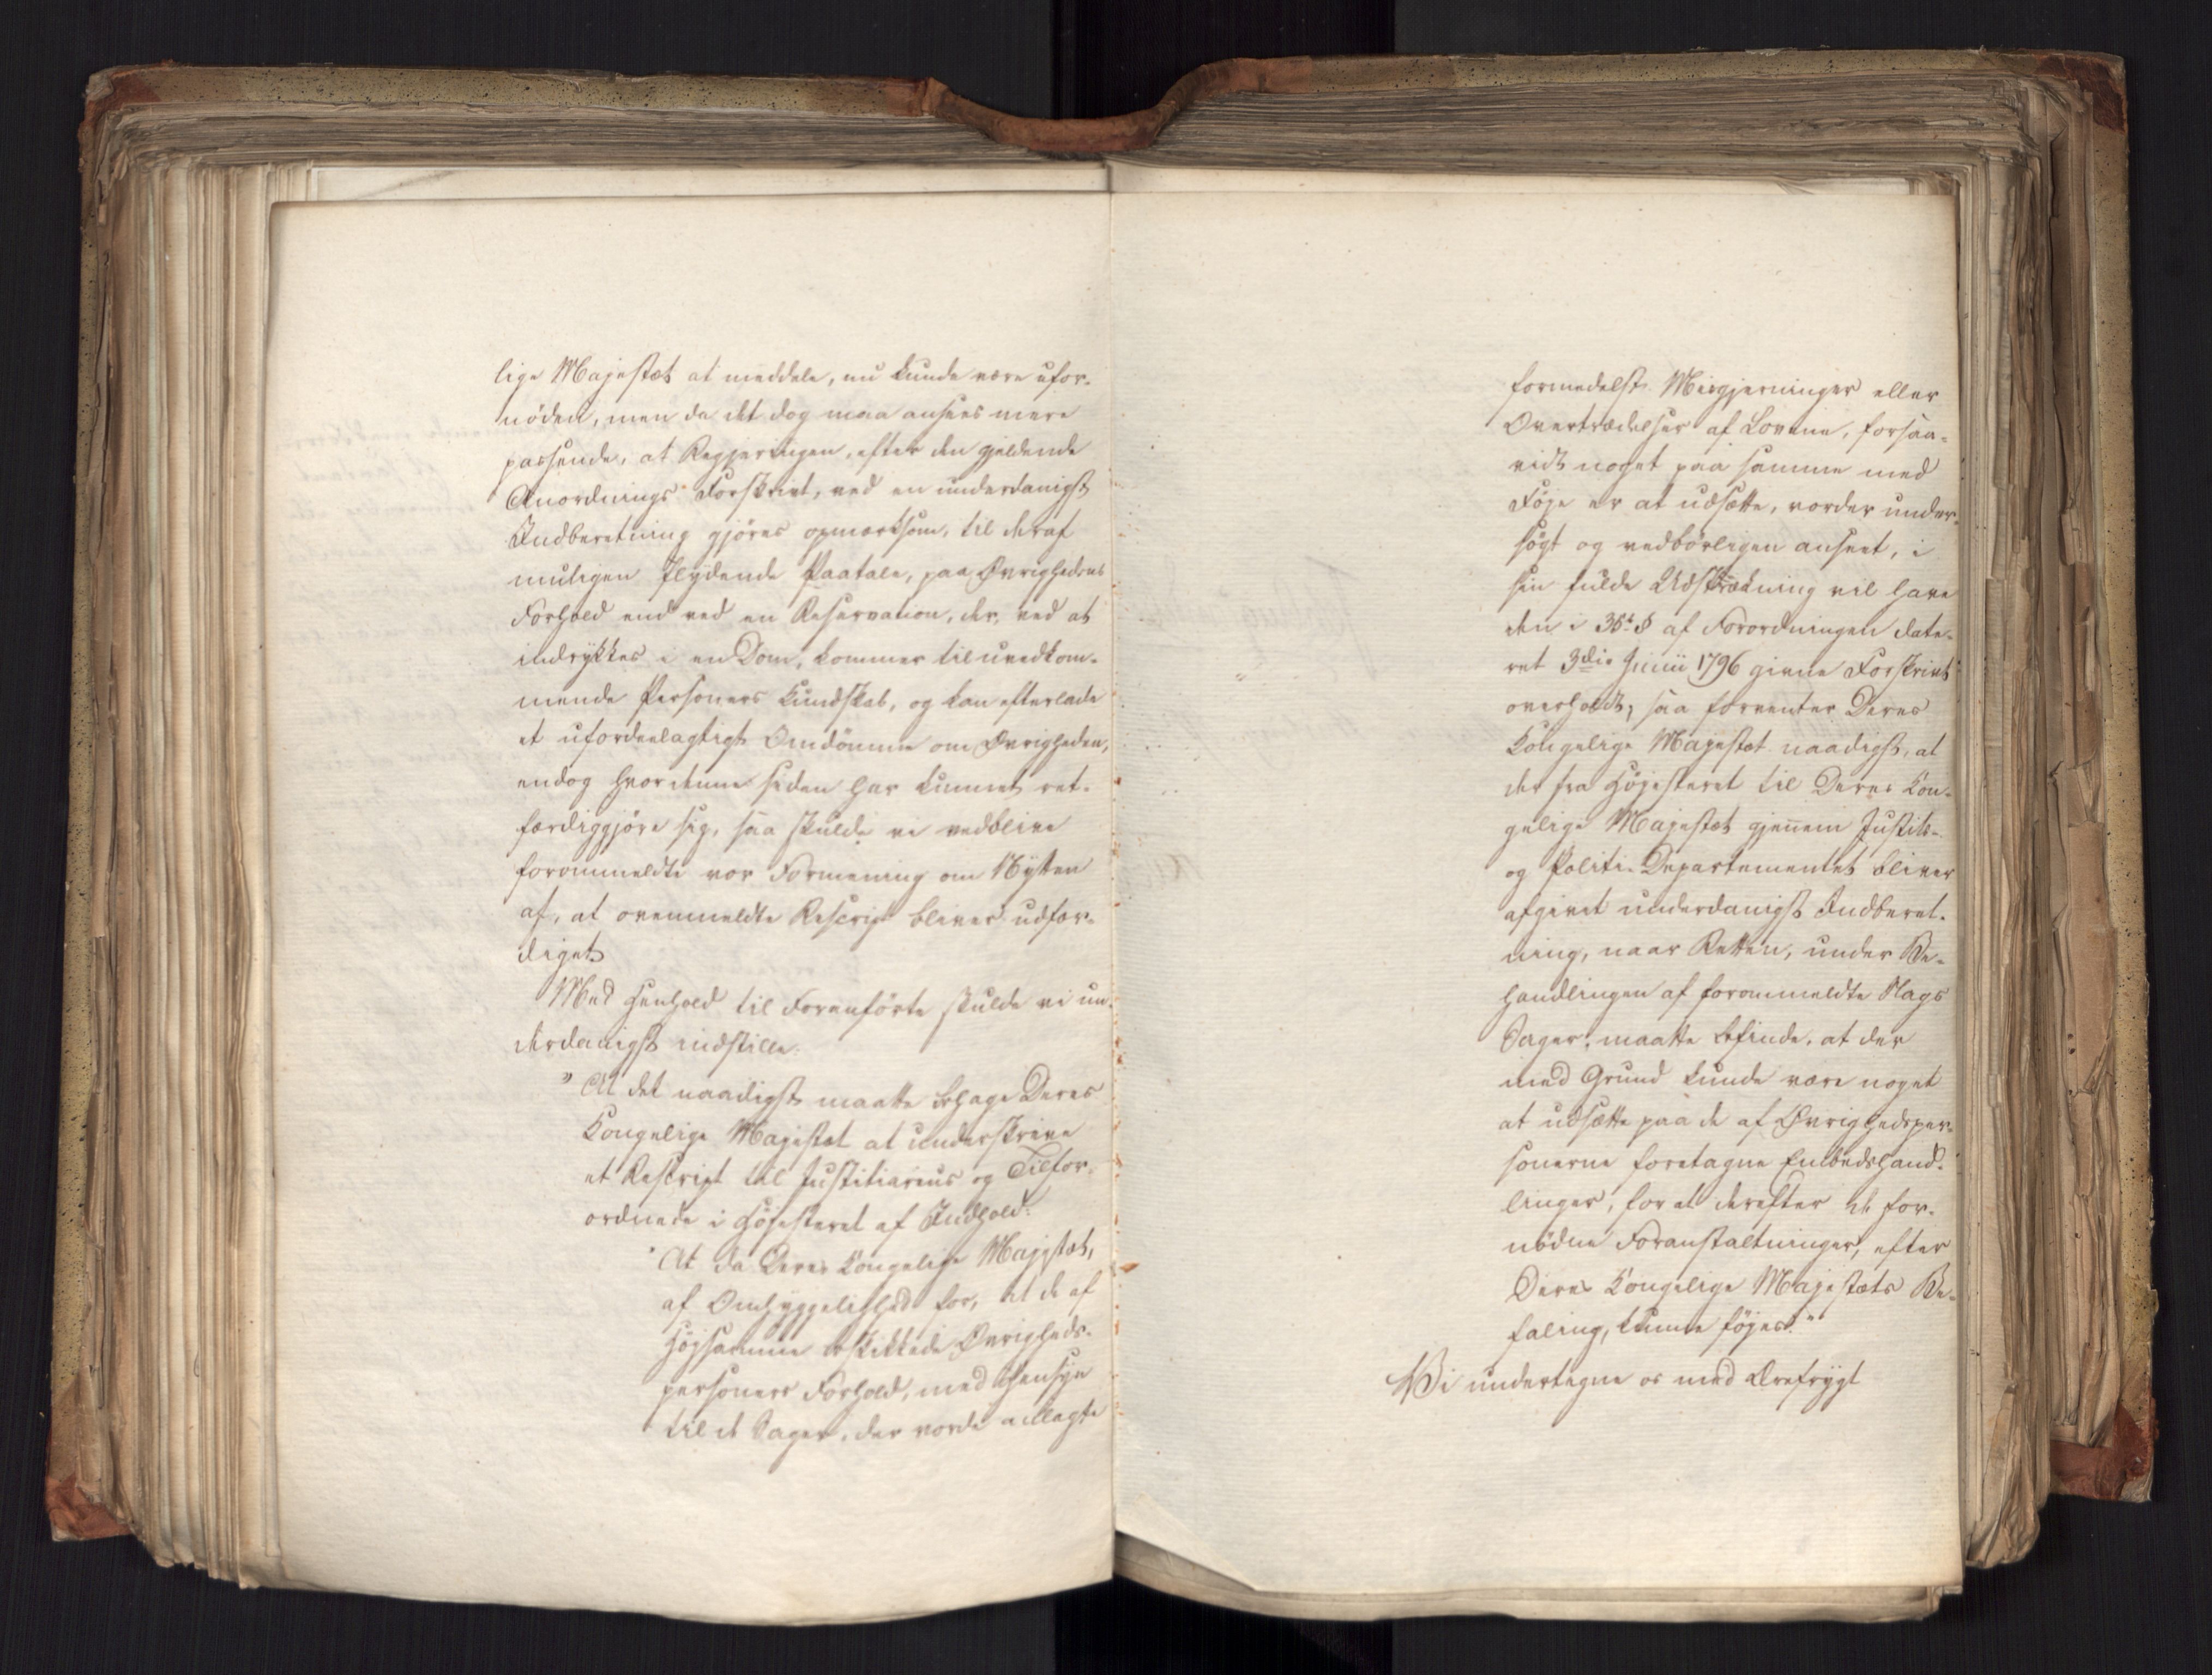 lige Majestæt at meddele, nu kunde være ufor-
nöden, men da det dog maa ansees mere
passende, at Regjeringen, efter den gjeldende
Anordnings Forskrivt, ved en underdanigst
Indberetning gjöres opmærksom, til deraf
muligen flydende Paatale, paa Övrighedens
Forhold end ved en Reservation, der, ved at
indrykkes i en Dom, kommer til uvedkom-
mende Personers Kundskab, og kan efterlade
et ufordeelagtigt Omdömme om Övrigheden,
endog hvor denne siden har kunnet ret-
færdiggjöre sig, saa skulde vi vedblive
forommeldte vor Formening om Nytten
af, at ovenmeldte Rescript bliver udfær-
diget
Med Henhold til Foranförte skulde vi un-
derdanigst indstille:
" At det naadigst maatte behage Deres
Kongelige Majestæt at underskrive
et Rescript til Justitiarius og Tilfor-
ordnede i Höjesteret af Indhold:
" At da Deres Kongelige Majestæt,
af Omhyggelighed for, at de af
Höjsamme beskikkede Övrigheds-
personers Forhold, med Hensyn
til de Sager, der vorde anlagte
formedelst Misgjerninger eller
Overtrædelser af Lovene, forsaa-
vidt noget paa samme med
Föje er at udsætte, vorder under-
sögt og vedbörligen anseet, i
sin fulde Udstrækning vil have
den i 36t § af Forordningen date-
ret 3die Junii 1796 givne Forskrivt
overholdt, saa forventer Deres
Kongelige Majestæt naadigst, at
der fra Höjesteret til Deres Kon-
gelige Majestæt gjennem Justits-
og Politi-Departementet bliver
afgivet underdanigst Indberet-
ning, naar Retten, under Be-
handlingen af forommeldte Slags
Sager, maatte befinde, at der
med Grund kunde være noget
at udsætte paa de af Övrighedsper-
sonerne foretagne Embedshand-
linger, for at derefter de for-
nödne Foranstaltninger, efter
Deres Kongelige Majestæts Be-
faling, kunne föjes."
Vi undertegne os med Ærefrygt